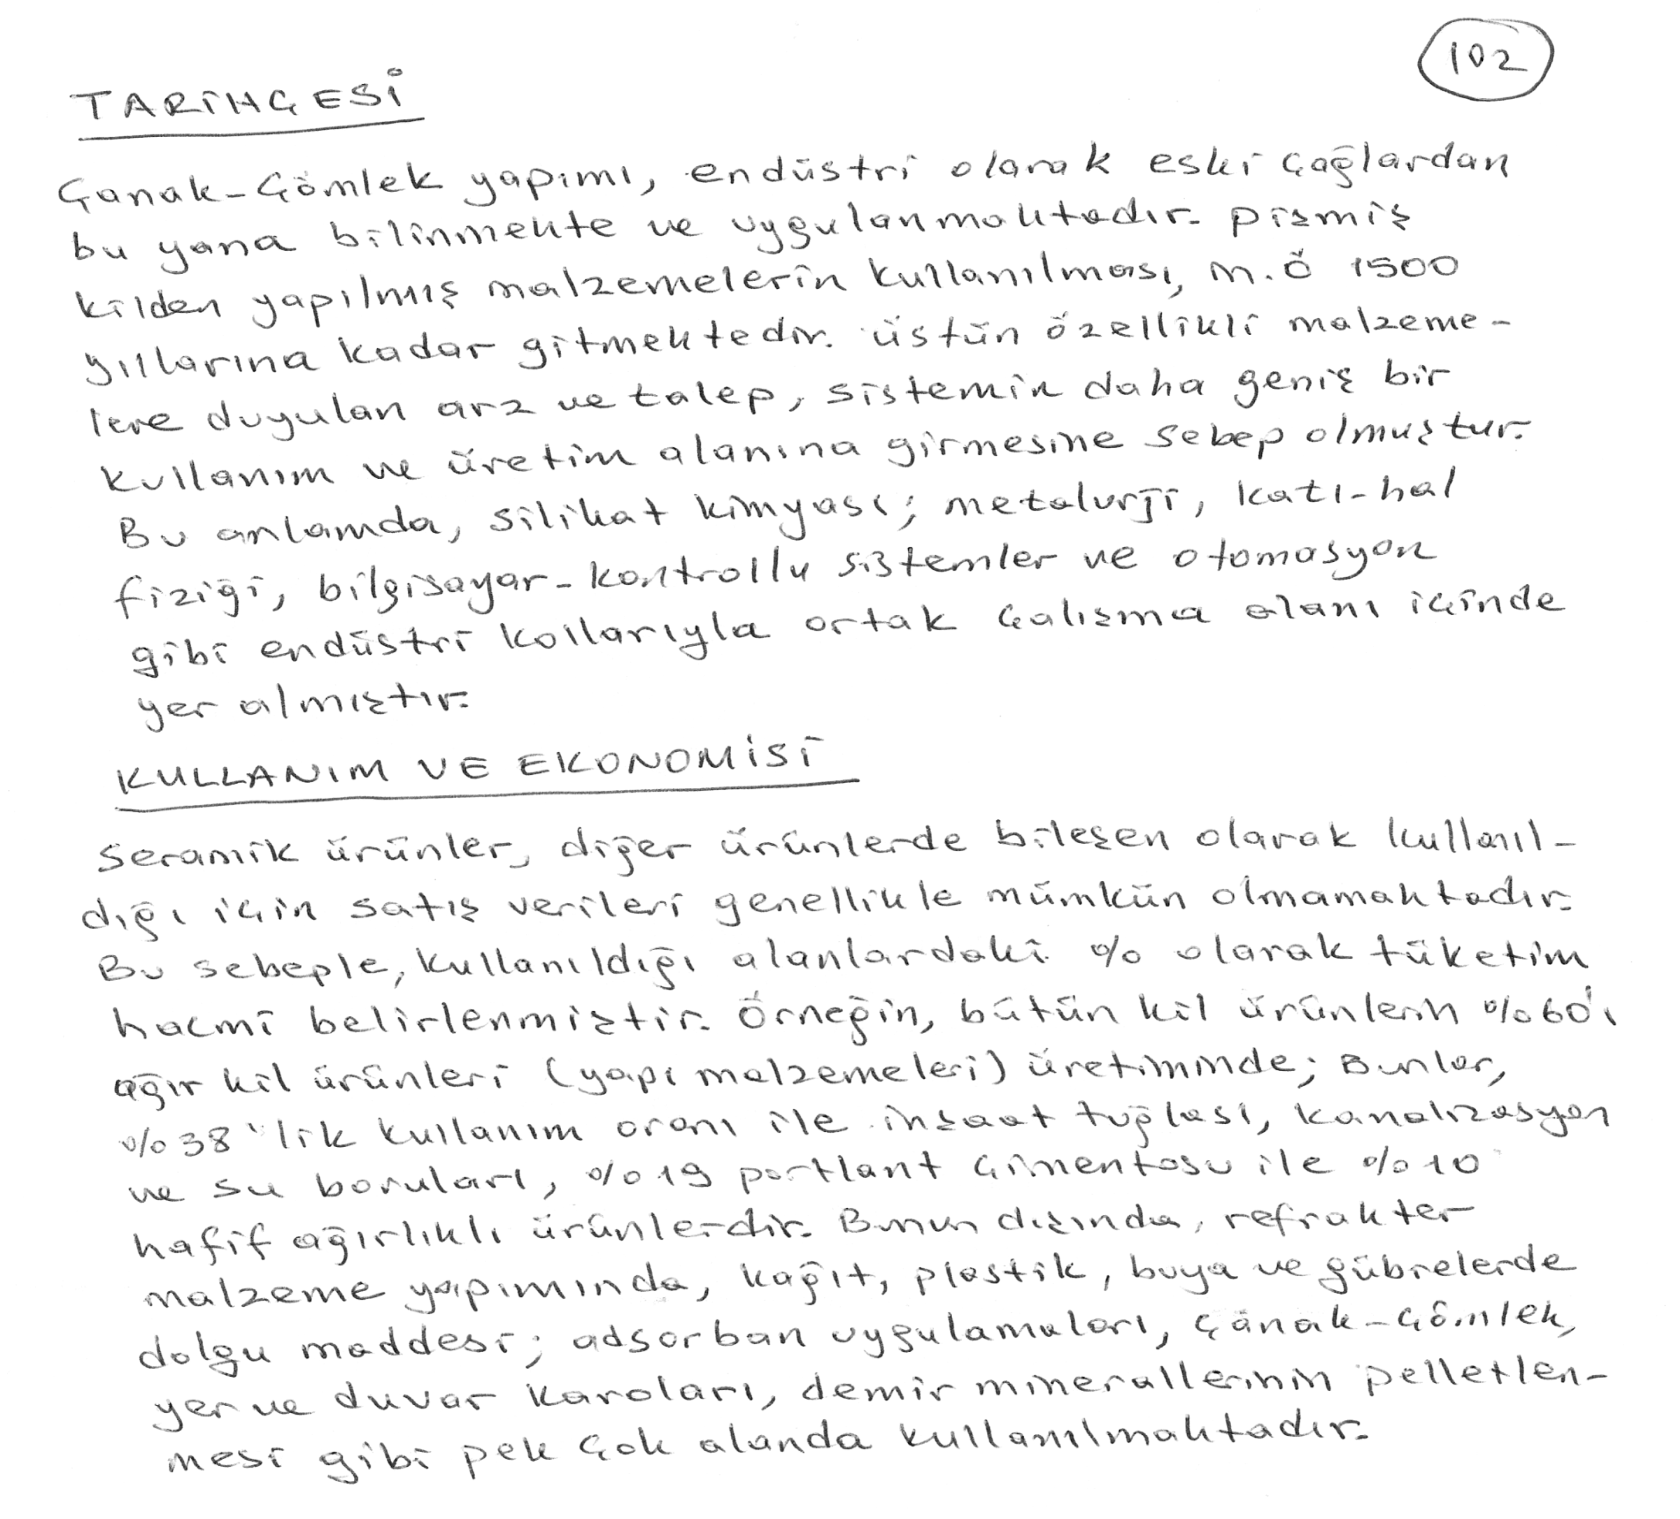 102
TARİHÇESİ
Çanak-Çömlek yapımı, endüstri olarak eski çağlardan
bu yana bilinmekte ve uygulanmaktadır. Pişmiş
kilden yapılmış malzemelerin kullanılması, M.Ö 1500
yıllarına kadar gitmektedir. Üstün özellikli malzeme-
lere duyulan arz ve talep, sistemin daha geniş bir
kullanım ve üretim alanına girmesine sebep olmuştur.
Bu anlamda, silikat kimyası; metalurji, katı-hal
fiziği, bilgisayar-kontrollu sistemler ve otomasyon
gibi endüstri kollarıyla ortak çalışma alanı içinde
yer almıştır.
KULLANIM VE EKONOMİSİ
Seramik ürünler, diğer ürünlerde bileşen olarak kullanıl-
dığı için satış verileri genellikle mümkün olmamaktadır.
Bu sebeple, kullanıldığı alanlardaki % olarak tüketim
hacmi belirlenmiştir. Örneğin, bütün kil ürünlerin %60'ı
ağır kil ürünleri (yapı malzemeleri) üretiminde; Bunlar,
%38'lik kullanım oranı ile inşaat tuğlası, kanalizasyon
ve su boruları, %19 portlant çimentosu ile %10
hafif ağırlıklı ürünlerdir. Bunun dışında, refrakter
malzeme yapımında, kağıt, plastik, boya ve gübrelerde
dolgu maddesi; adsorban uygulamaları, çanak-çömlek,
yer ve duvar karoları, demir minerallerinin pelletlen-
mesi gibi pek çok alanda kullanılmaktadır.